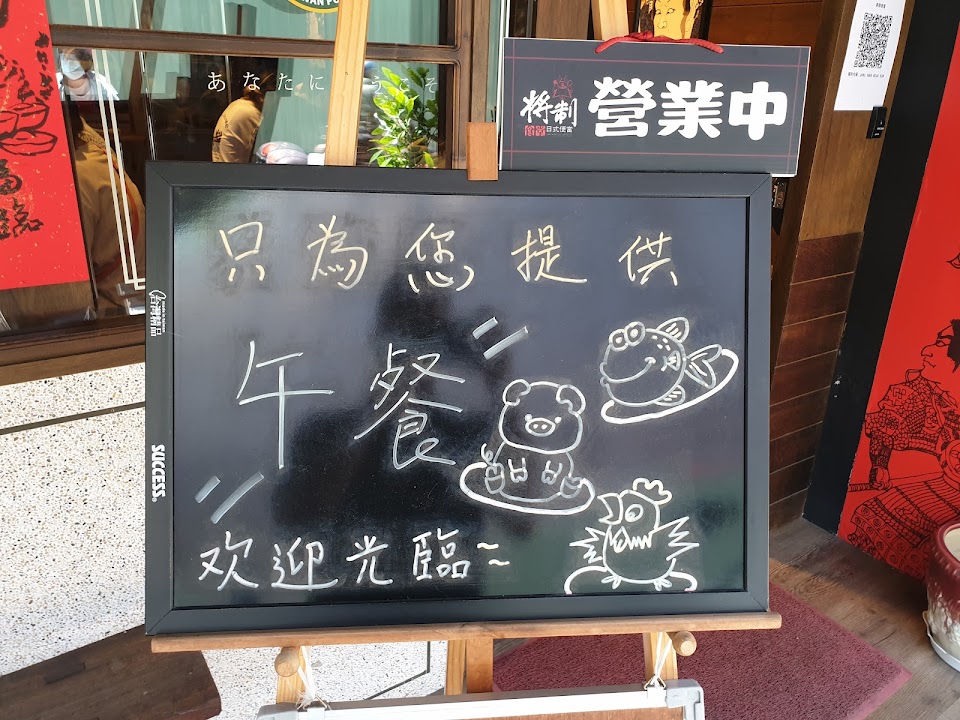 あなたに ようこそ
将制
日式便當
營業中
只為您提供
午餐
欢迎光臨~
SUCCESS®
臨